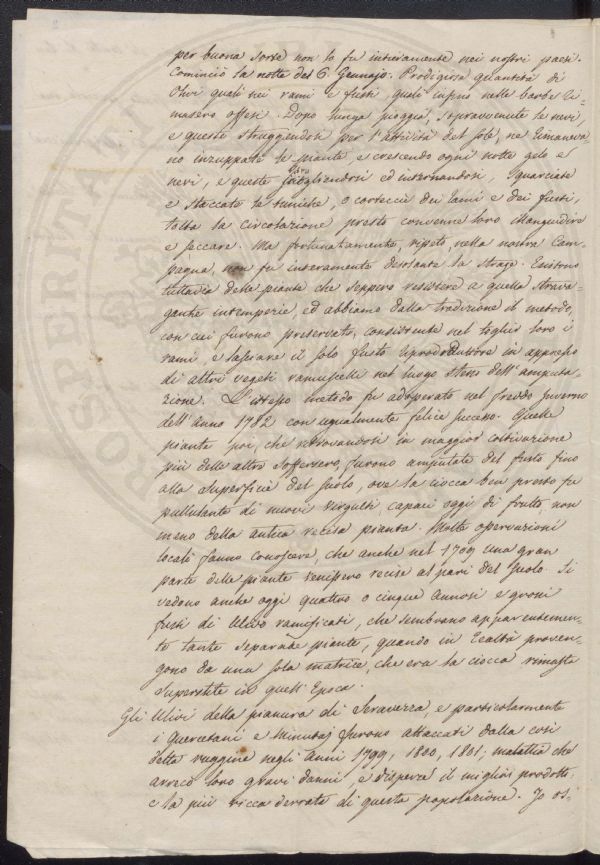 per buona sorte non lo fu interamente nei nostri paesi.
Cominciò la notte del 6. Gennajo. Prodigiosa quantità di
Olivi quali nei rami e fusti, quali infino nelle barbe ri-
masero offesi. Dopo lunga pioggia, sopravvenute le nevi
e queste struggendosi per l'attività del sole, ne rimaneva-
no inzuppate le piante, e crescendo ogni notte gelo e
nevi, e queste ed internandosi, squarciate
e staccate le tuniche, o corteccie dei rami e dei fusti,
tolta la circolazione presto convenne loro illanguidire
e seccare. Ma fortunatamente, ripeto, nella nostra Cam-
pagna, non fu interamente desolante la strage. Esistono
tuttavia delle piante che seppero resistere a quella strava-
gante intemperie, ed abbiamo dalla tradizione il metodo,
con cui furono preservate, consistente nel toglier loro i
rami, e lasciare il solo fusto riproduttore in appresso
di altri vegeti ramuscelli nel luogo stesso dell'amputa-
zione. L'istesso metodo fu adoperato nel freddo Inverno
dell'anno 1782 con ugualmente felice successo. Quelle
piante poi, che ritrovandosi in maggior coltivazione
più delle altre soffersero, furono amputate del fusto fino
alla superficie del suolo, ove la ciocca ben presto fu
pullulante di nuovi virgulti, capaci oggi di frutto, non
meno della antica recisa pianta. Molte operazioni
locali fanno conoscere, che anche nel 1709 una gran
parte delle piante venissero recise al pari del suolo. Si
vedono anche oggi quattro o cinque annosi e grossi
fusti di Ulivo ramificati, che sembrano apparentemen-
te tante separate piante, quando in realtà proven-
gono da una sola matrice, che era la ciocca rimasta
superstite in quell'Epoca.
Gli Ulivi della pianura di Seravezza, e particolarmente
i Quercetani e Minutaj furono attaccati dalla così
detta ruggine negli anni 1799, 1800, 1801; malattia che
arrecò loro gravi danni, e disperse il miglior prodotto,
e la più ricca derrata di questa popolazione. Io os-